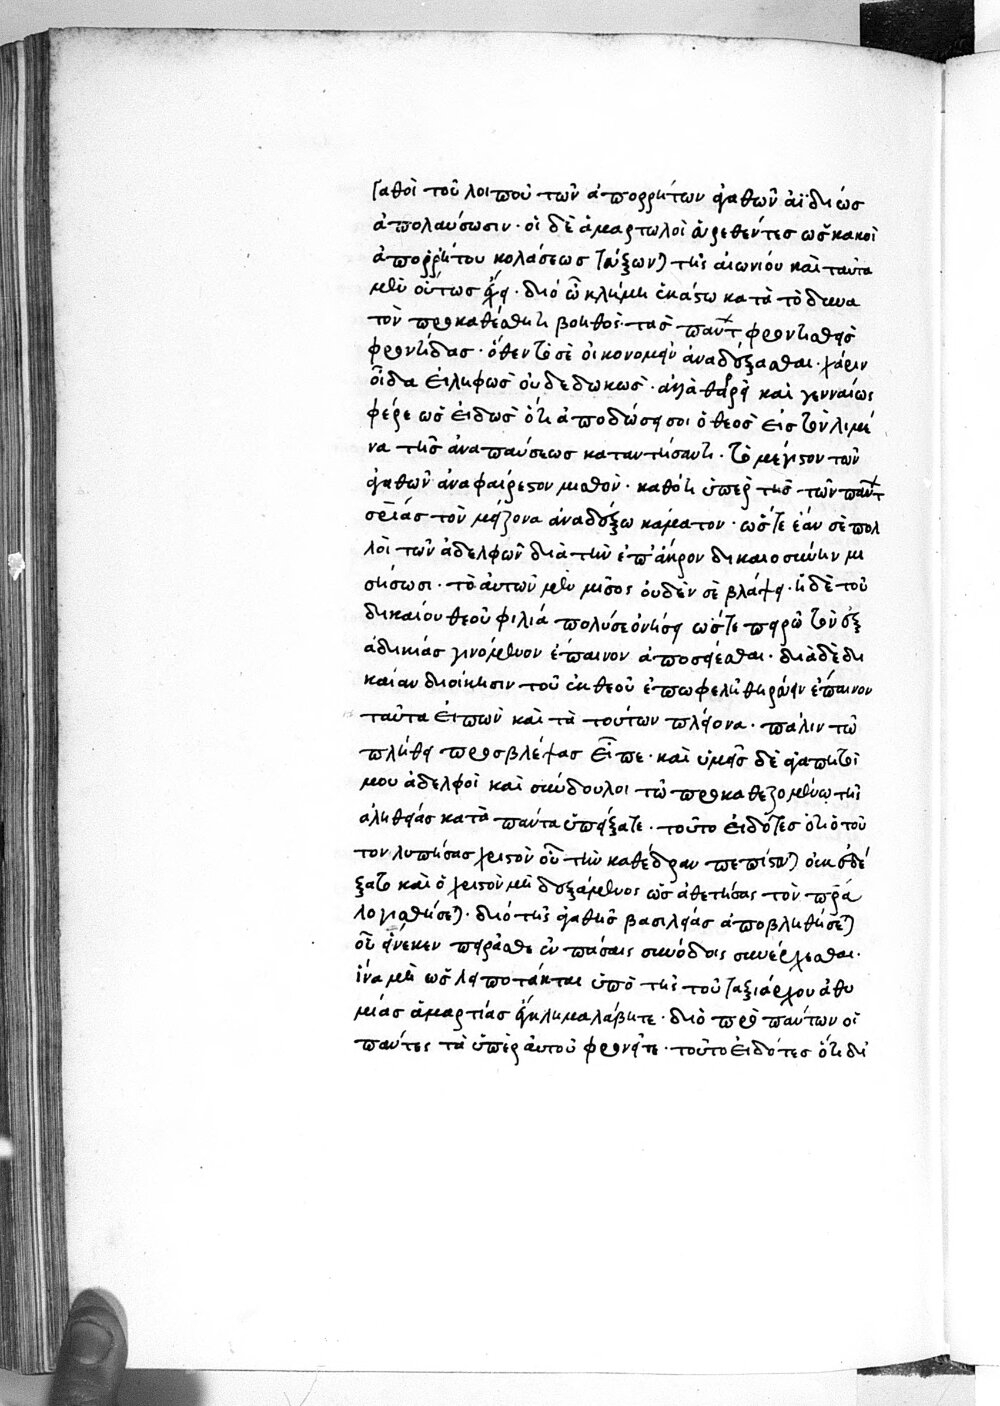 γαθοὶ τοῦ λοιποῦ τῶν ἀπορρήτων ἀγαθῶν ἀϊδίως
ἀπολαύσωσιν· οἱ δὲ ἁμαρτωλοὶ εὑρεθέντες ὡς κακοὶ
ἀπορρήτου κολάσεως τεύξωνται τῆς αἰωνίου καὶ ταῦτα
μὲν οὕτως ἔχει· διὸ ὦ κλήμη ἑκάστω κατὰ τὸ δυνα
τὸν προκαθέσθητι βοηθός τὰς παντ φροντισθεὶς
φροντίδας· ὅθεν τὸ σὲ οἰκονομεῖν ἀναδέξασθαι· χάριν
οἶδα εἰληφὼς οὐ δεδωκώς· ἀλλὰ θάρρει καὶ γενναίως
φέρε ὡς εἰδὼς ὅτι ἀποδώσει σοι ὁ θεὸς εἰς τὸν λιμέ
να τῆς ἀναπαύσεως καταντήσαντι· τὸ μέγιστον τῶν
ἀγαθῶν ἀναφαίρετον μισθὸν· καθότι ὑπὲρ τῆς τῶν παντ
σείας τὸν μείζονα ἀναδέξω κάματον· ὥστε ἐάν σε πολ
λοὶ τῶν ἀδελφῶν διὰ τὴν ἐπάκρον δικαιοσύνην μι
σήσωσι· τὸ αὐτῶν μὲν μῖσος οὐδέν σε βλάψει· ἡ δὲ τοῦ
δικαίου θεοῦ φιλία πολύ σε ὀνήσει ὥστε πειρῶ τὸν ἐξ
ἀδικίας γινόμενον ἔπαινον ἀποσείεσθαι· διὰ δὲ δι
καίαν διοίκησιν τοῦ ἐκ θεοῦ ἐπωφελῆ θηρᾶν ἔπαινον
ταῦτα εἰπὼν καὶ τὰ τούτων πλείονα· πάλιν τῶ
πλήθει προσβλέψας εἶπε· καὶ ὑμεῖς δὲ ἀγαπητοί
μου ἀδελφοὶ καὶ σύνδουλοι τῶ προκαθεζομένω τῆς
ἀληθείας κατὰ πάντα ὑπείξατε· τοῦτο εἰδότες ὅτι ὁ τοῦ
τον λυπήσας χριστὸν οὗ τὴν καθέδραν πεπίστευται οὐκ ἐδέ
ξατο καὶ ὁ χριστὸν μὴ δεξάμενος ὡς ἀθετήσας τὸν πρα
λογισθήσεται· διὸ τῆς ἀγαθῆς βασιλείας ἀποβληθήσεται
οὗ εἵνεκεν πειρᾶσθε ἐν πάσαις συνόδοις συνέρχεσθαι·
ἵνα μὴ ὡς λειποτάκται ὑπὸ τῆς τοῦ ταξιάρχου ἀθυ
μίας ἁμαρτίας ἔγκλημα λάβητε· διὸ πρὸ πάντων οἱ
πάντες τὰ ὑπὲρ αὐτοῦ φρονεῖτε· τοῦτο εἰδότες ὅτι δι